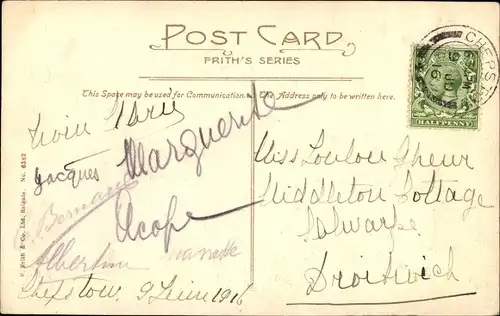 POST CARD
FRITH'S SERIES
This Space may be used for Communication.
The Address only to be written here.
Jacques Marguerite
Bernard
Albertine Nanette
Chepstow. 9 Juin 1916
Miss Loulou
Middleton Cottage
Salwarpe
Droitwich
HALF PENNY
CHEPST
F. Frith & Co., Ltd., Reigate. No. 6582